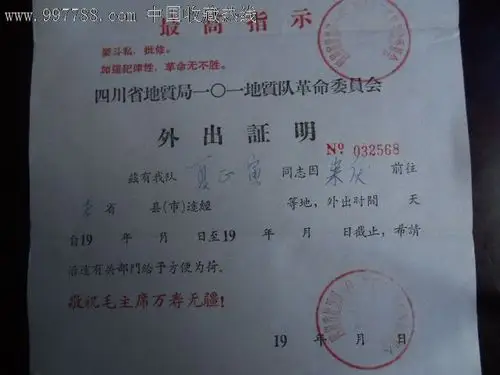 www.997788.com 中国收藏热线
最高指示
要斗私,批修。
加强纪律性,革命无不胜。
四川省地质局一〇一地质队革命委員会
外出証明
№ 032568
兹有我队 夏正寅 同志因 前往
省 县(市)途經 等地,外出时間 天
自19 年 月 日至19 年 月 日截止,希請
沿途有关部門給予方便为荷。
敬祝毛主席万寿无疆!
19 年 月 日